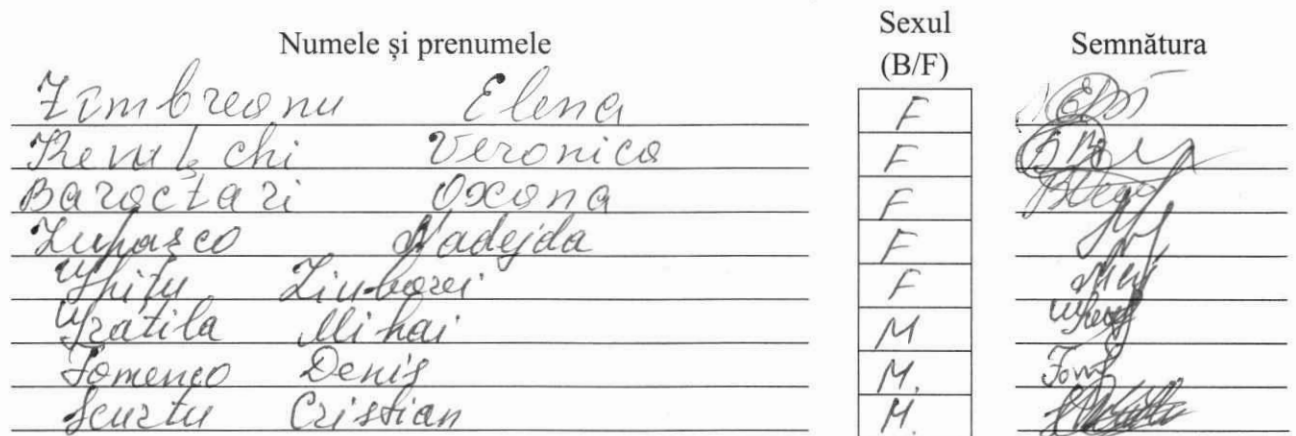 Numele și prenumele Sexul (B/F) Semnătura
Zîmbreanu Elena F
Veronica F
Baractari Oxana F
Lupașco Nadejda F
Ghițu Liubovi F
Gratila Mihai M
Fomenco Denis M.
Scurtu Cristian M.